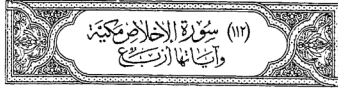 (١١٢) سُورَةُ الإِخْلَاصِ مَكِّيَّة
وَآيَاتُهَا أَرْبَعٌ